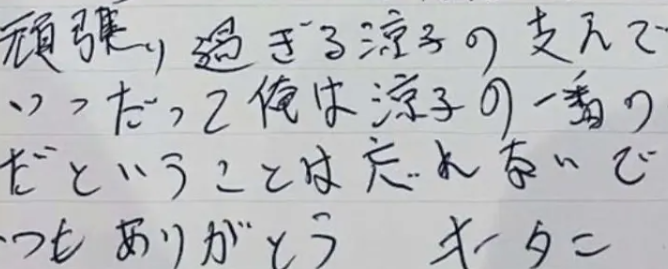 頑張り過ぎる涼子の支えで
いつだって俺は涼子の一番の
だということは忘れないで
つもありがとう キータニ